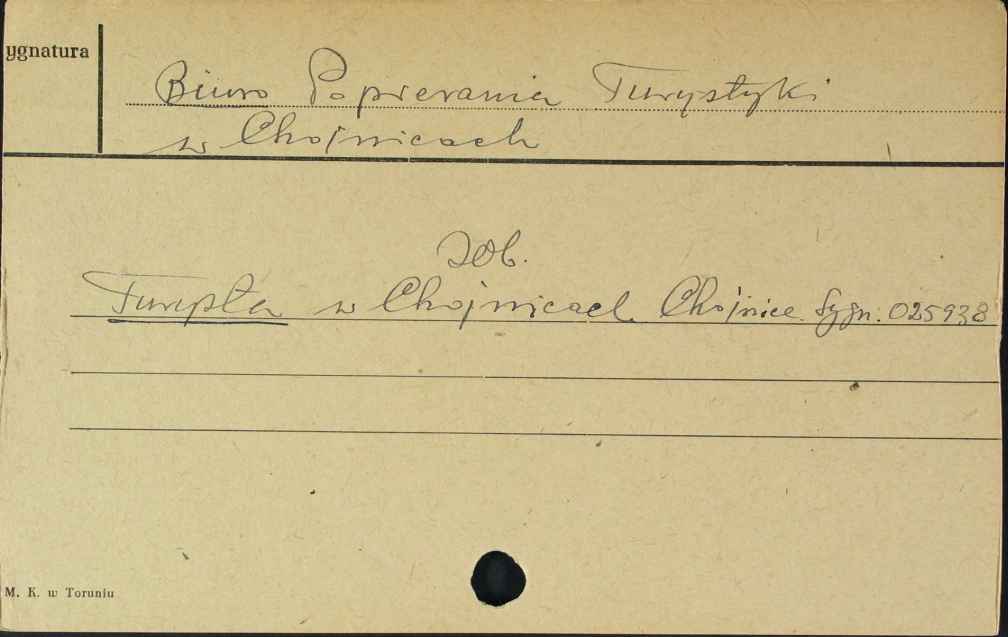 ygnatura
Biuro Popierania Turystyki
w Chojnicach
zob.
Turysta w Chojnicach. Chojnice. Sygn. 025938
M. K. w Toruniu